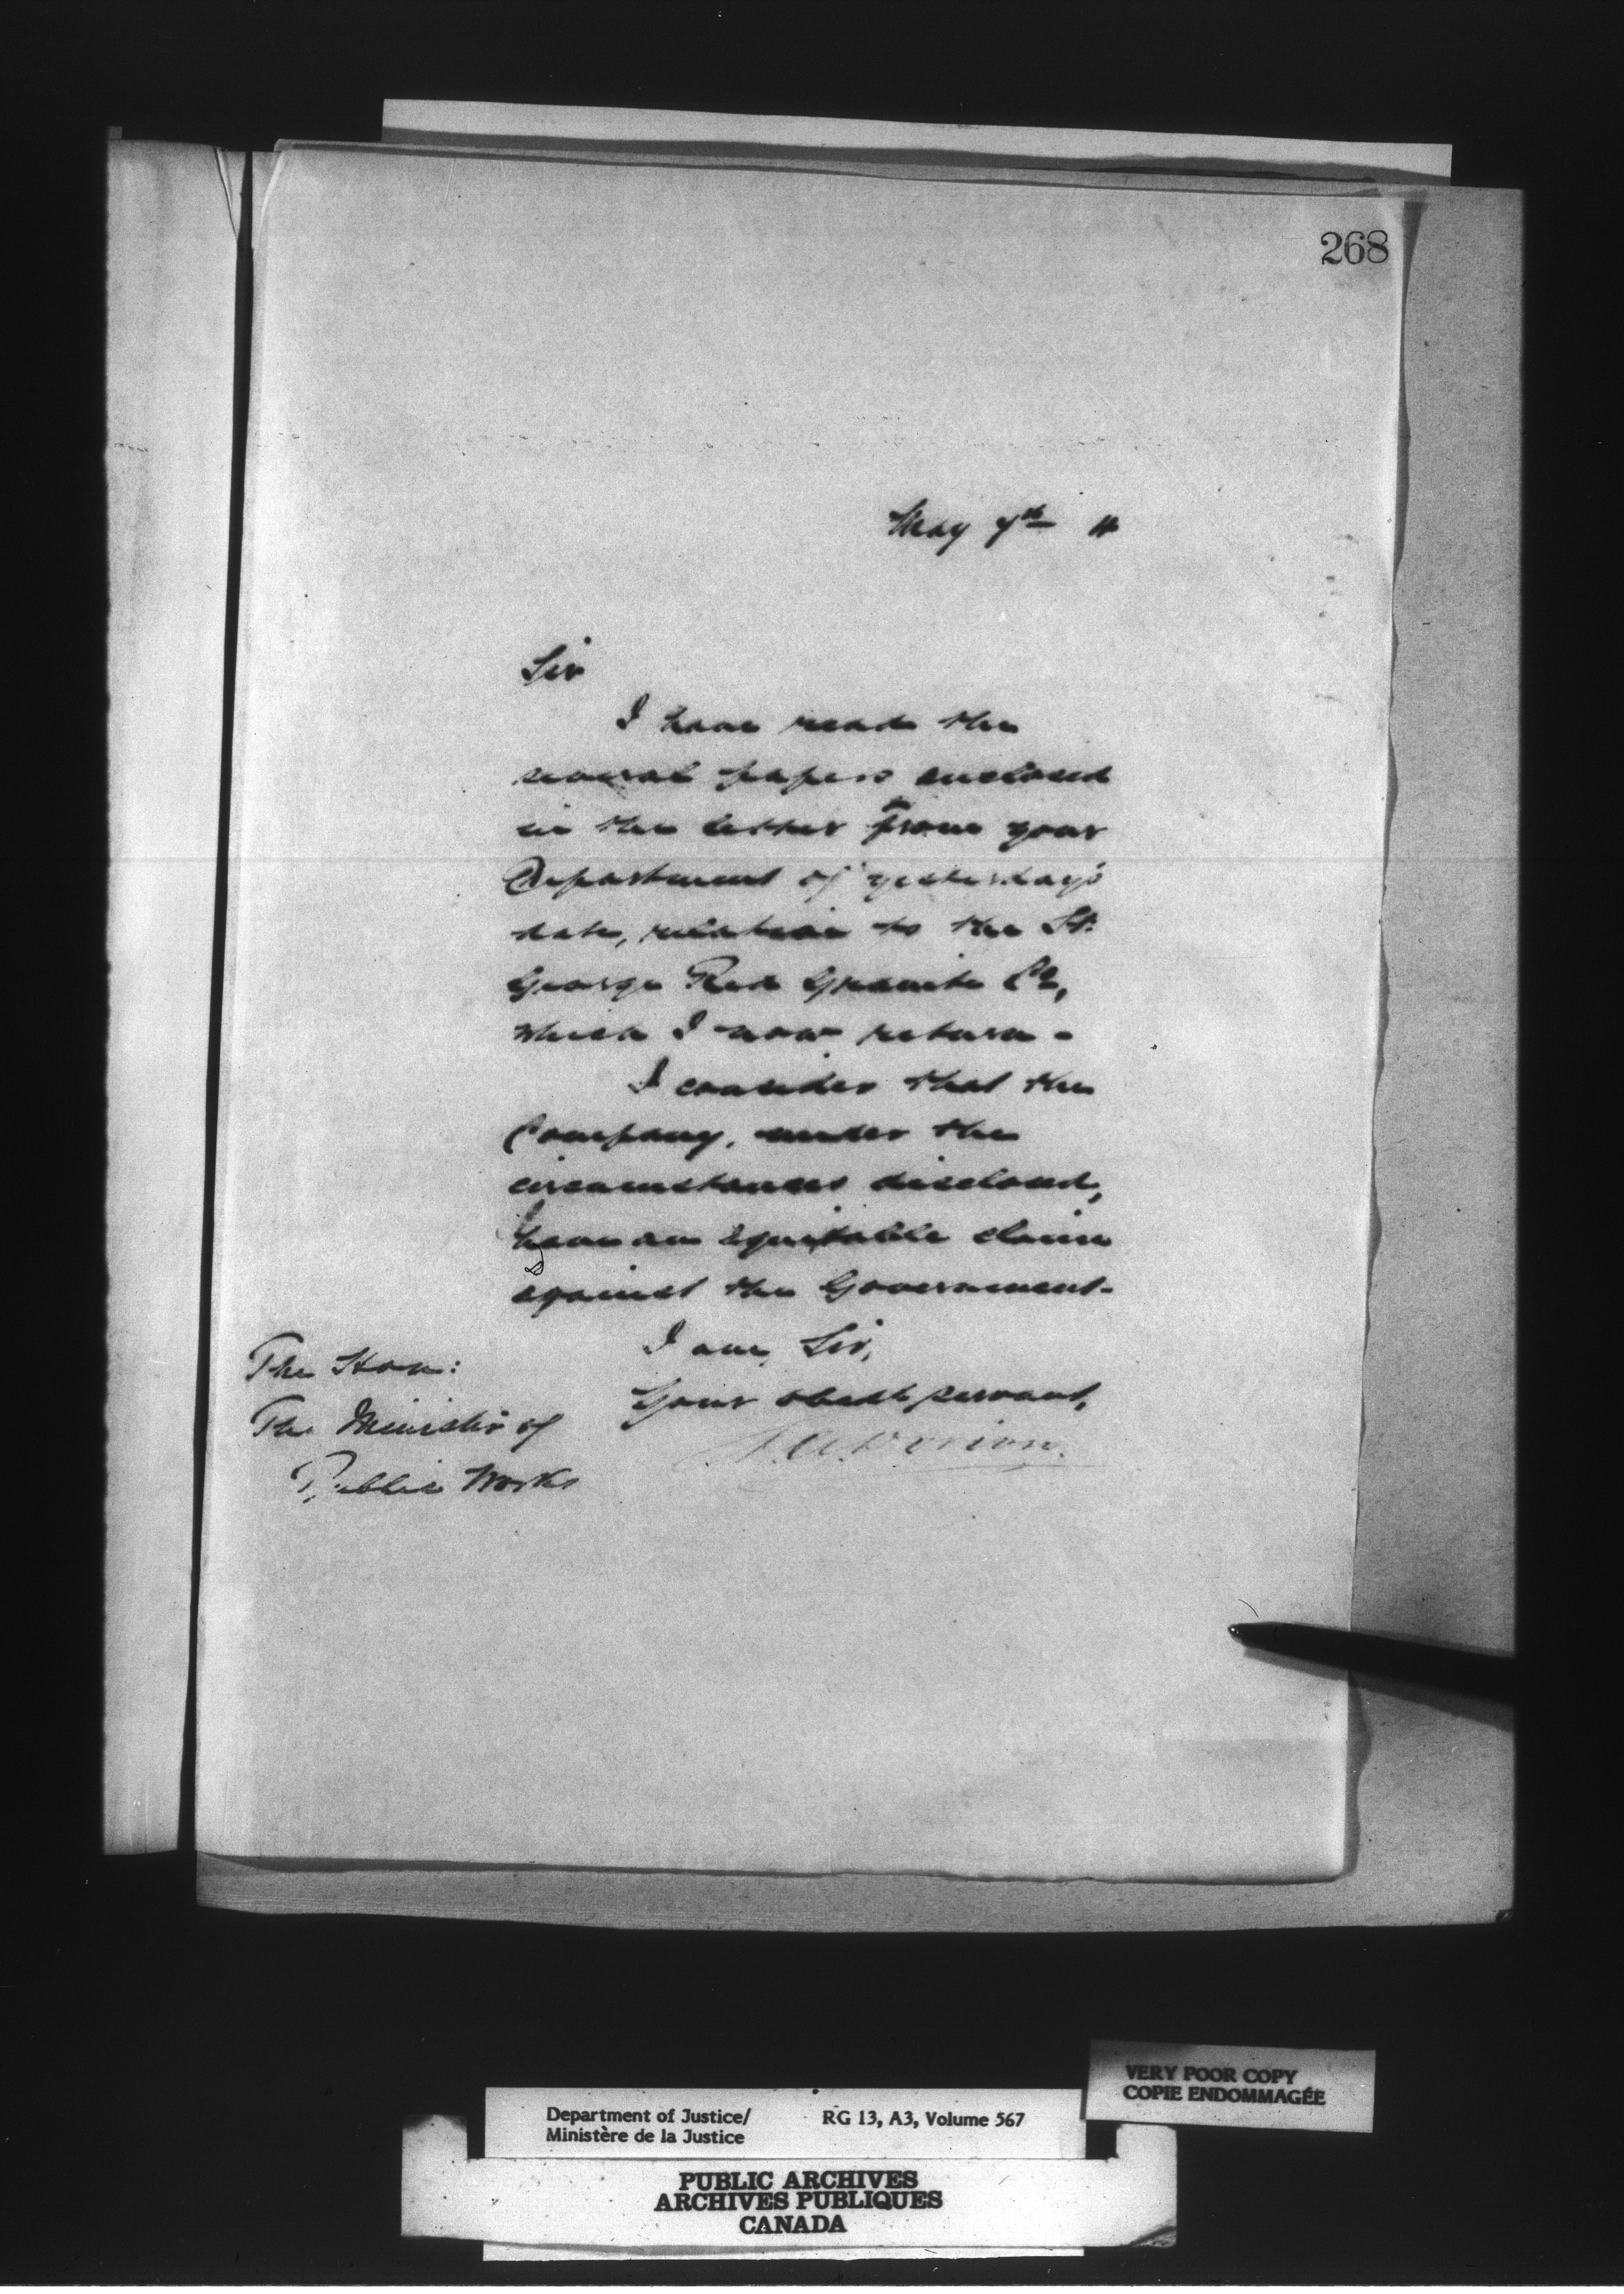 268
May 7th 4
Sir
I have read the
several papers enclosed
in the letter from your
Department of yesterday's
date, relative to the St.
George Red Granite Co,
which I now return -
I consider that the
Company, under the
circumstances disclosed,
have an equitable claim
against the Government -
I am, Sir,
Your obedt servant,
A. A. Dorion.
The Hon:
The Minister of
Public Works
VERY POOR COPY
COPIE ENDOMMAGÉE
Department of Justice/ RG 13, A3, Volume 567
Ministère de la Justice
PUBLIC ARCHIVES
ARCHIVES PUBLIQUES
CANADA